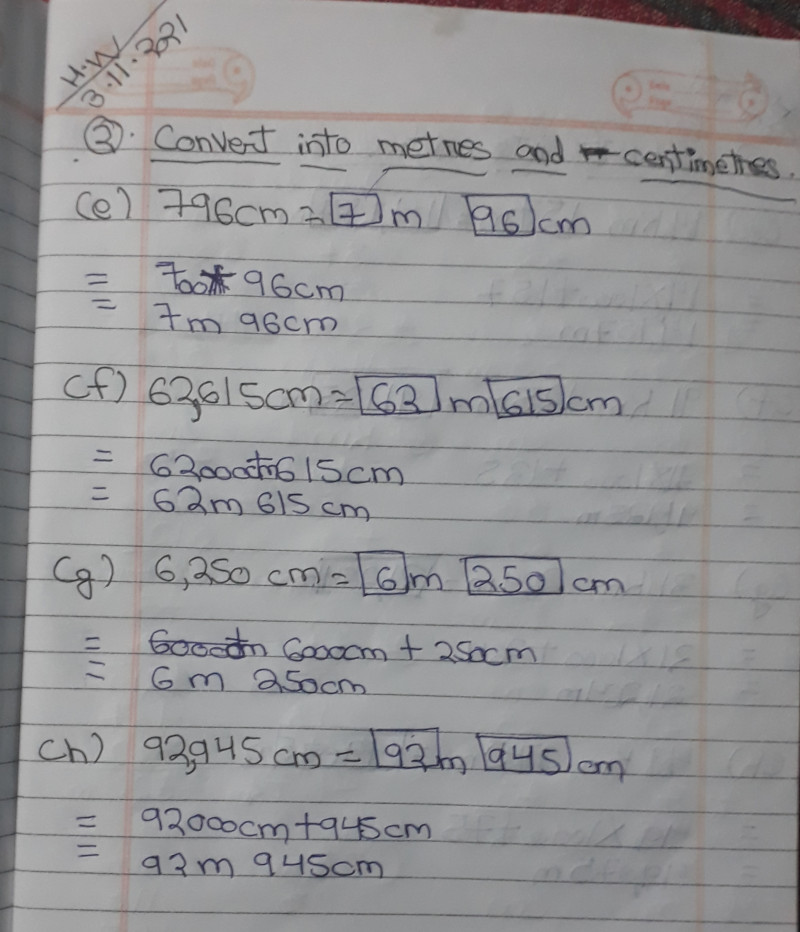 H.W
3.11.2021
③. Convert into metres and centimetres.
(e) 796cm = 7 m 96 cm
= 700+ 96cm
= 7m 96cm
(f) 62,615cm = 62 m 615 cm
= 62000+615cm
= 62m 615cm
(g) 6,250 cm = 6 m 250 cm
= 6000cm + 250cm
= 6 m 250cm
(h) 92,945 cm = 92 m 945 cm
= 92000cm+945cm
= 92m 945cm